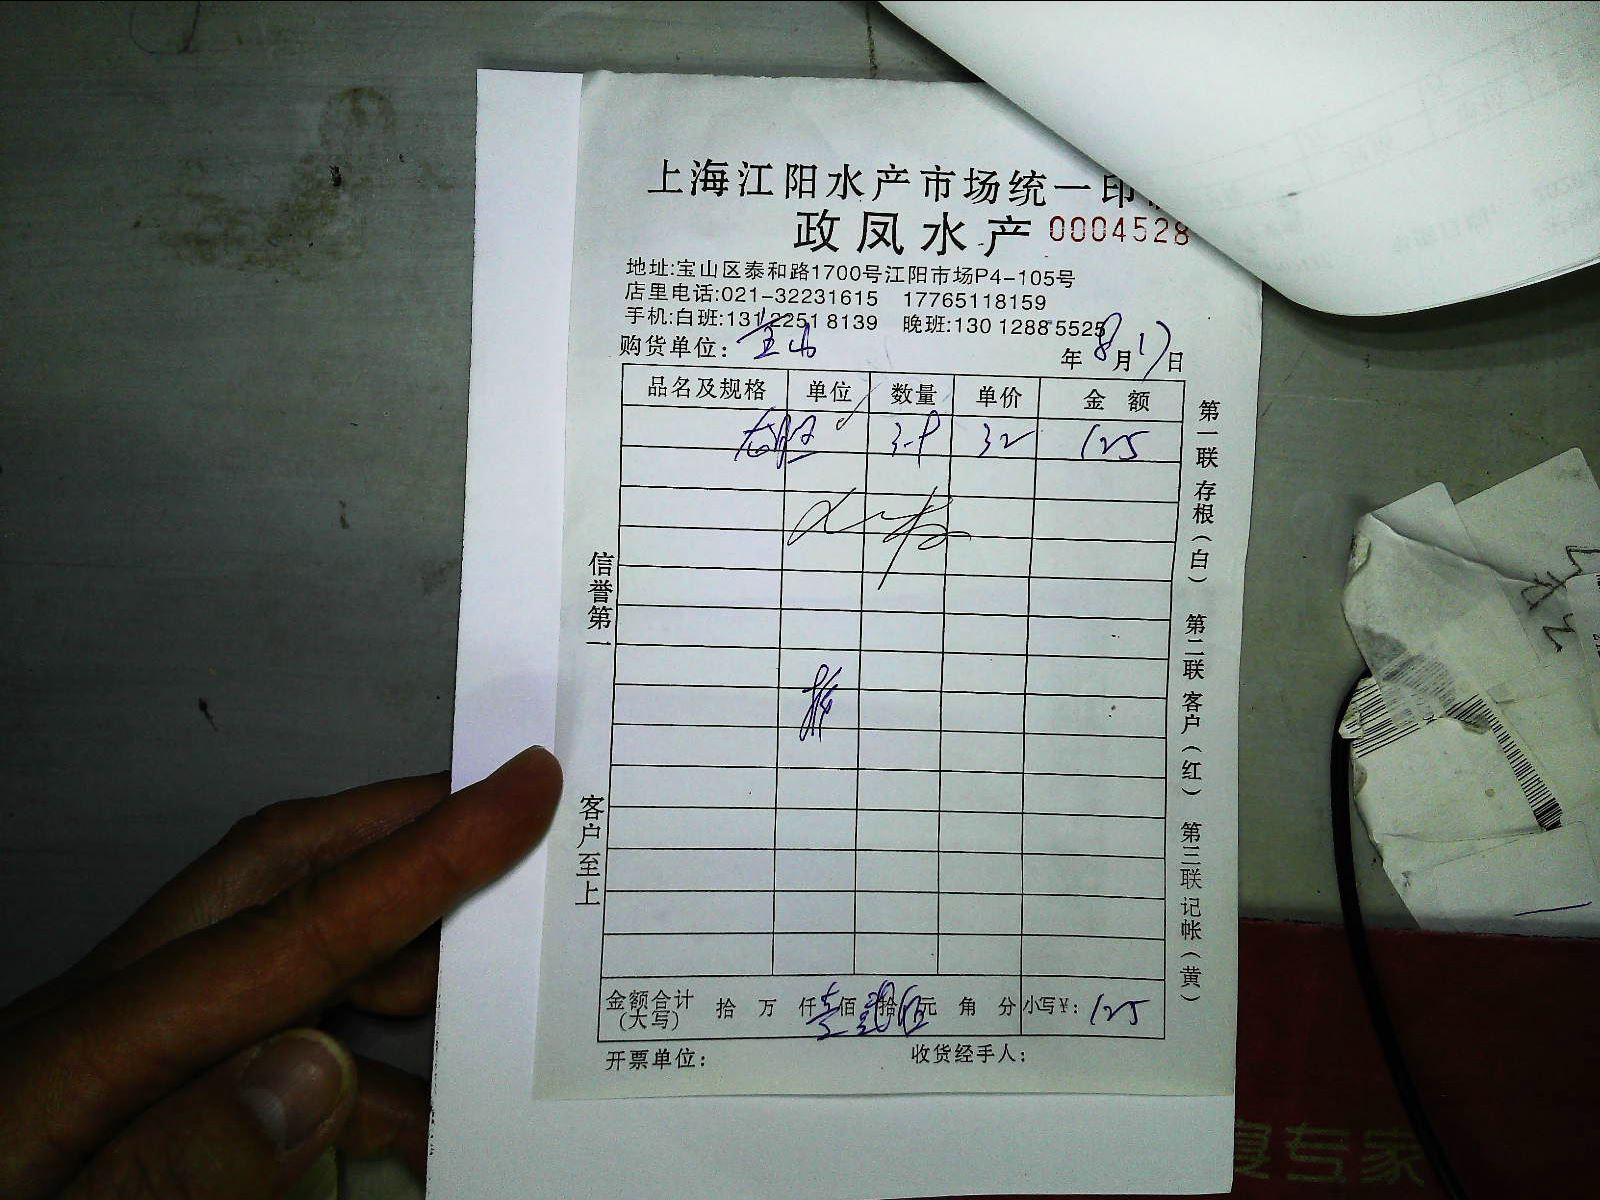 上海江阳水产市场统一印
政凤水产 0004528
地址:宝山区泰和路1700号江阳市场P4-105号
店里电话:021-32231615 17765118159
手机:白班:131 2251 8139 晚班:130 1288 5525
购货单位: 宝山 年 8 月 17 日
品名及规格 单位 数量 单价 金 额
32 125
信誉第一
客户至上
第一联 存根(白) 第二联 客户(红) 第三联 记帐(黄)
金额合计(大写) 拾 万 仟 壹 佰 贰 拾 伍 元 角 分 小写¥: 125
开票单位: 收货经手人:
食专家